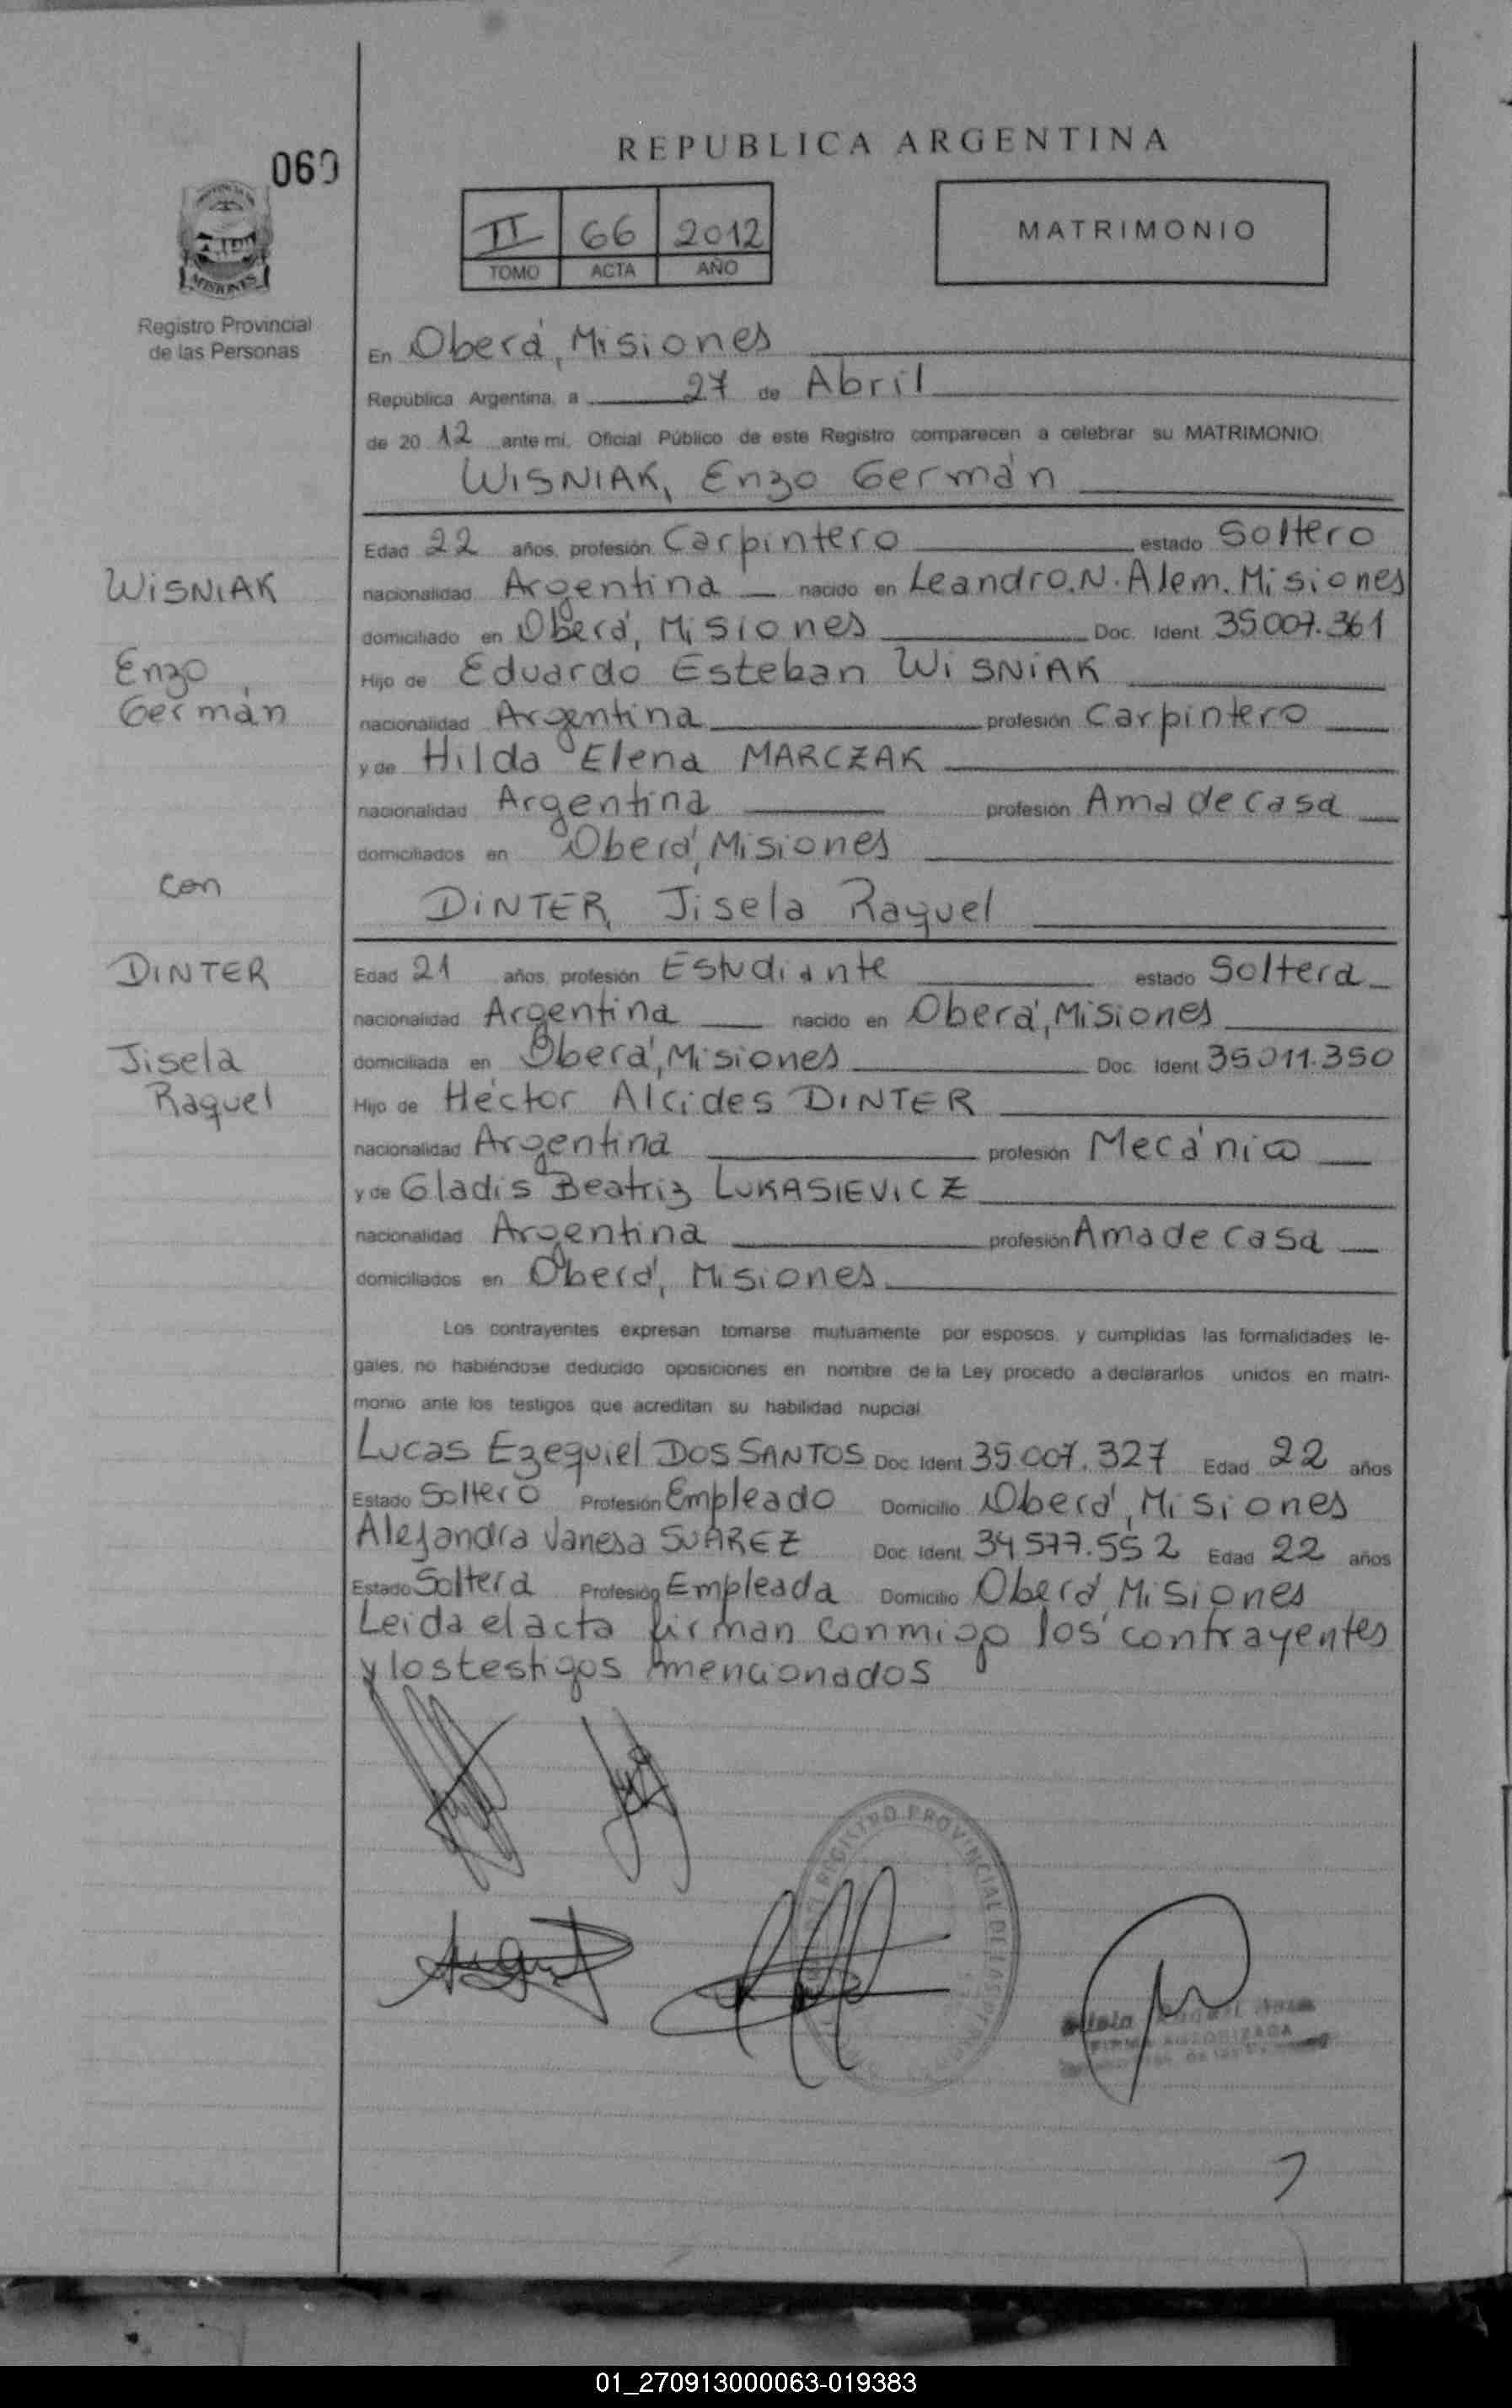 REPUBLICA ARGENTINA
060
II 66 2012
TOMO ACTA AÑO
MATRIMONIO
MISIONES
Registro Provincial
de las Personas
En Oberá, Misiones
República Argentina, a 27 de Abril
de 2012 ante mi, Oficial Público de este Registro comparecen a celebrar su MATRIMONIO
WISNIAK, Enzo Germán
Edad 22 años, profesión Carpintero estado Soltero
WISNIAK
nacionalidad Argentina nacido en Leandro.N.Alem.Misiones
domiciliado en Oberá, Misiones Doc. Ident 35.007.361
Enzo
Hijo de Eduardo Esteban WISNIAK
Germán
nacionalidad Argentina profesión Carpintero
y de Hilda Elena MARCZAK
nacionalidad Argentina profesión Ama de casa
domiciliados en Oberá, Misiones
con
DINTER, Jisela Raquel
DINTER
Edad 21 años, profesión Estudiante estado Soltera
nacionalidad Argentina nacido en Oberá, Misiones
Jisela
domiciliada en Oberá, Misiones Doc. Ident 35.011.350
Raquel
Hijo de Héctor Alcides DINTER
nacionalidad Argentina profesión Mecánico
y de Gladis Beatriz LUKASIEVICZ
nacionalidad Argentina profesión Ama de casa
domiciliados en Oberá, Misiones
Los contrayentes expresan tomarse mutuamente por esposos, y cumplidas las formalidades le-
gales, no habiéndose deducido oposiciones en nombre de la Ley procedo a declararlos unidos en matri-
monio ante los testigos que acreditan su habilidad nupcial
Lucas Ezequiel DOS SANTOS Doc. Ident 35.007.327 Edad 22 años
Estado Soltero Profesión Empleado Domicilio Oberá, Misiones
Alejandra Vanesa SUAREZ Doc. Ident. 34.577.552 Edad 22 años
Estado Soltera Profesión Empleada Domicilio Oberá Misiones
Leida el acta firman conmigo los contrayentes
y los testigos mencionados
REGISTRO PROVINCIAL DE LAS
FIRMA AUTORIZADA
01_270913000063-019383